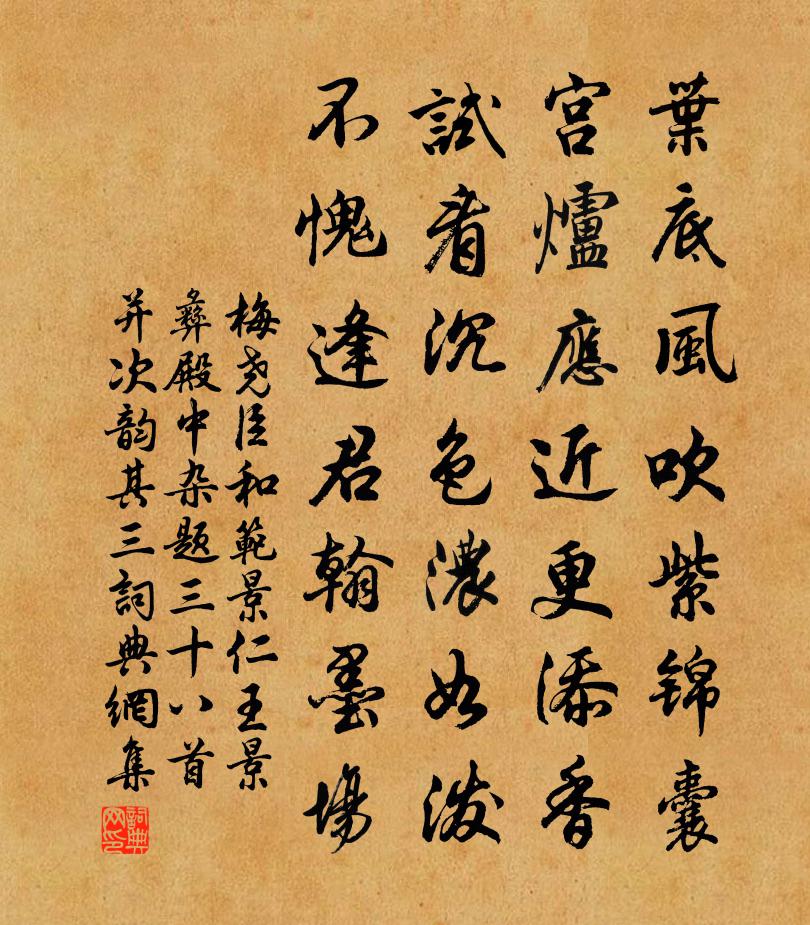 葉底風吹紫錦囊
宫爐應近更添香
試看沉色濃如潑
不愧逢君翰墨場
梅尧臣和範景仁王景
彝殿中杂題三十八首
并次韵其三詞典網集
詞典网印